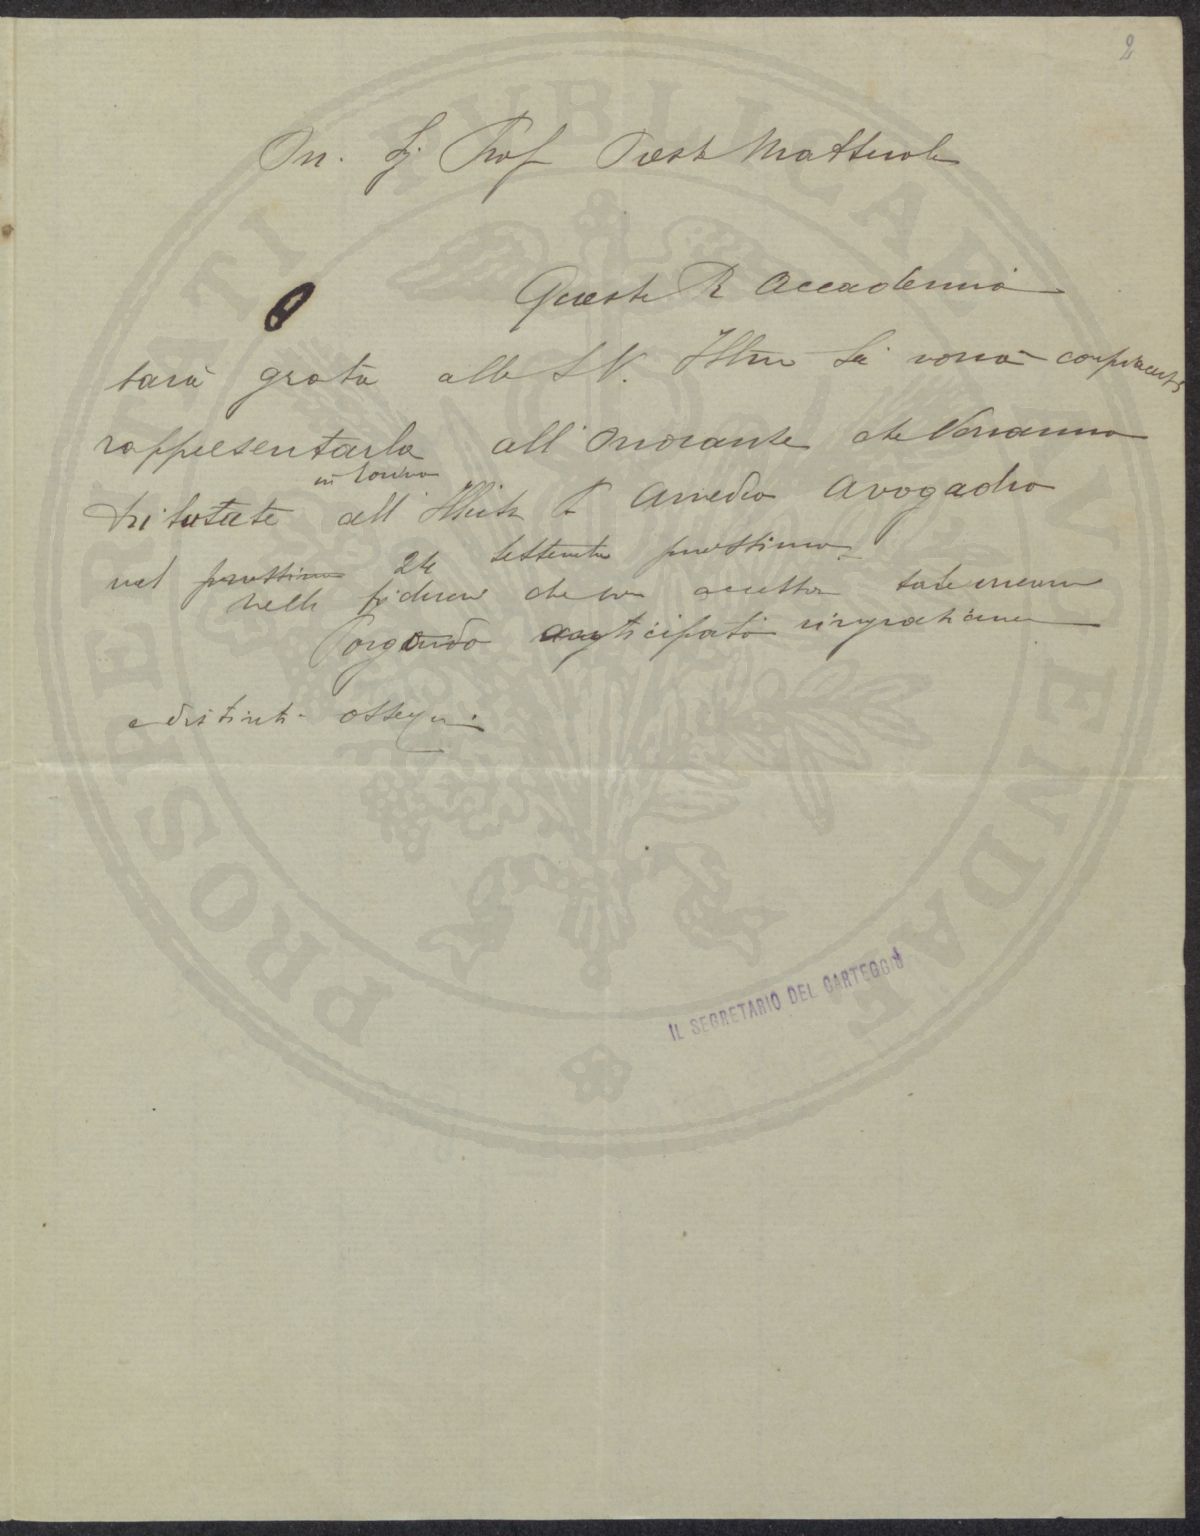 2
On. Sig Prof Orest Mattirolo
Questa R Accademia
sarà grata alla S.V. Illma se vorrà compiacersi
rappresentarla all'onoranze che verranno
in Torino
tributate all' Amedeo Avogadro
nel prossimo 24 settembre prossimo
nella fiducia che accetterà
Porgendo anticipati ringraziamenti
e distinti ossequi.
IL SEGRETARIO DEL CARTEGGIO
PROSPERITATI PUBLICAE AUGENDAE